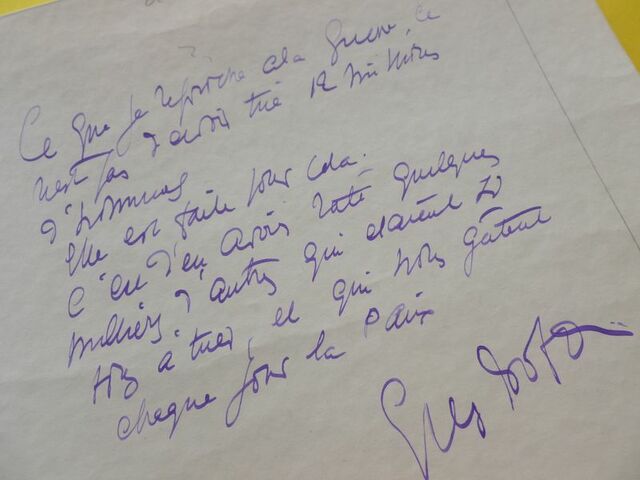 Ce que je reproche à la guerre, ce
n'est pas d'avoir tué 12 millions
d'hommes
Elle est faite pour cela.
C'est d'en avoir raté quelques
milliers d'autres qui étaient
à tuer, et qui nous gâtent
chaque jour la Paix